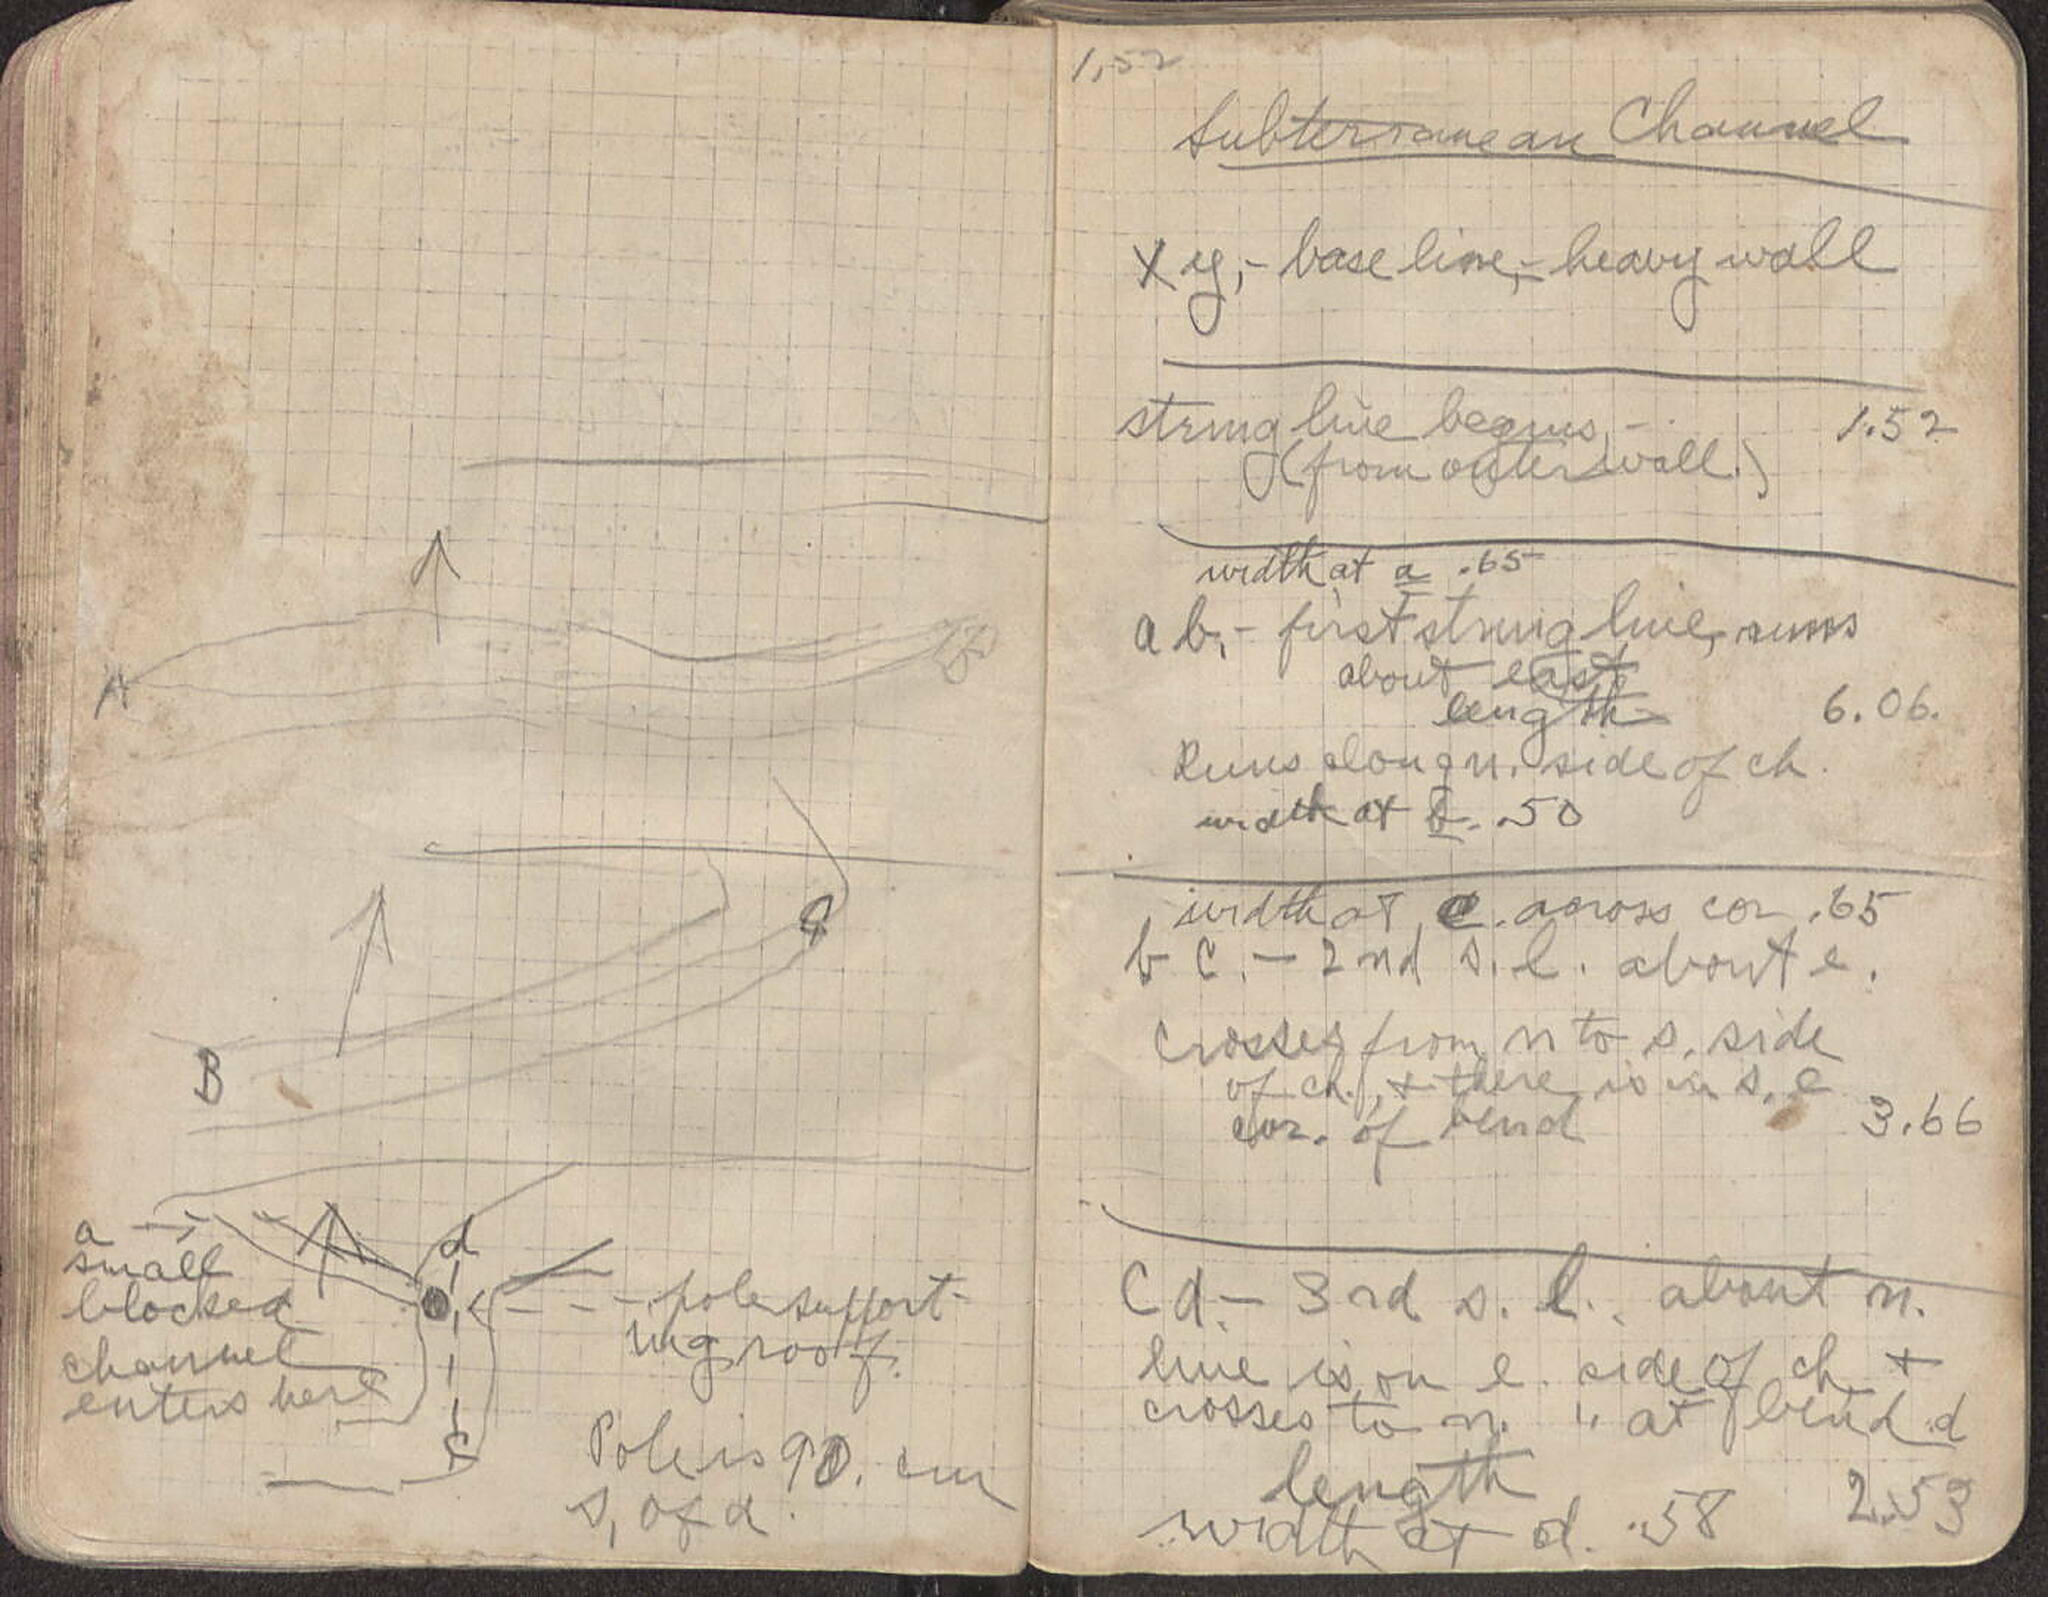 A
B
B
C
a
small
blocked
channel
enters here
d
pole support-
ing roof.
C
Pole is 90. cm
s. of d.
1,52
Subterranean Channel
x y,- base line,- heavy wall
string line begins,- 1.52
(from outer wall.)
width at a .65
a b,- first string line, runs
about east
length 6.06.
Runs along n. side of ch.
width at b. .50
width at c. across cor .65
b C.- 2nd s. l. about e.
Crosses from n to s. side
of ch., + there is in s. e
cor. of bend 3.66
C d.- 3rd s. l. about n.
line is on e. side of ch +
crosses to n. " at bend d
length 2.53
width at d. .58